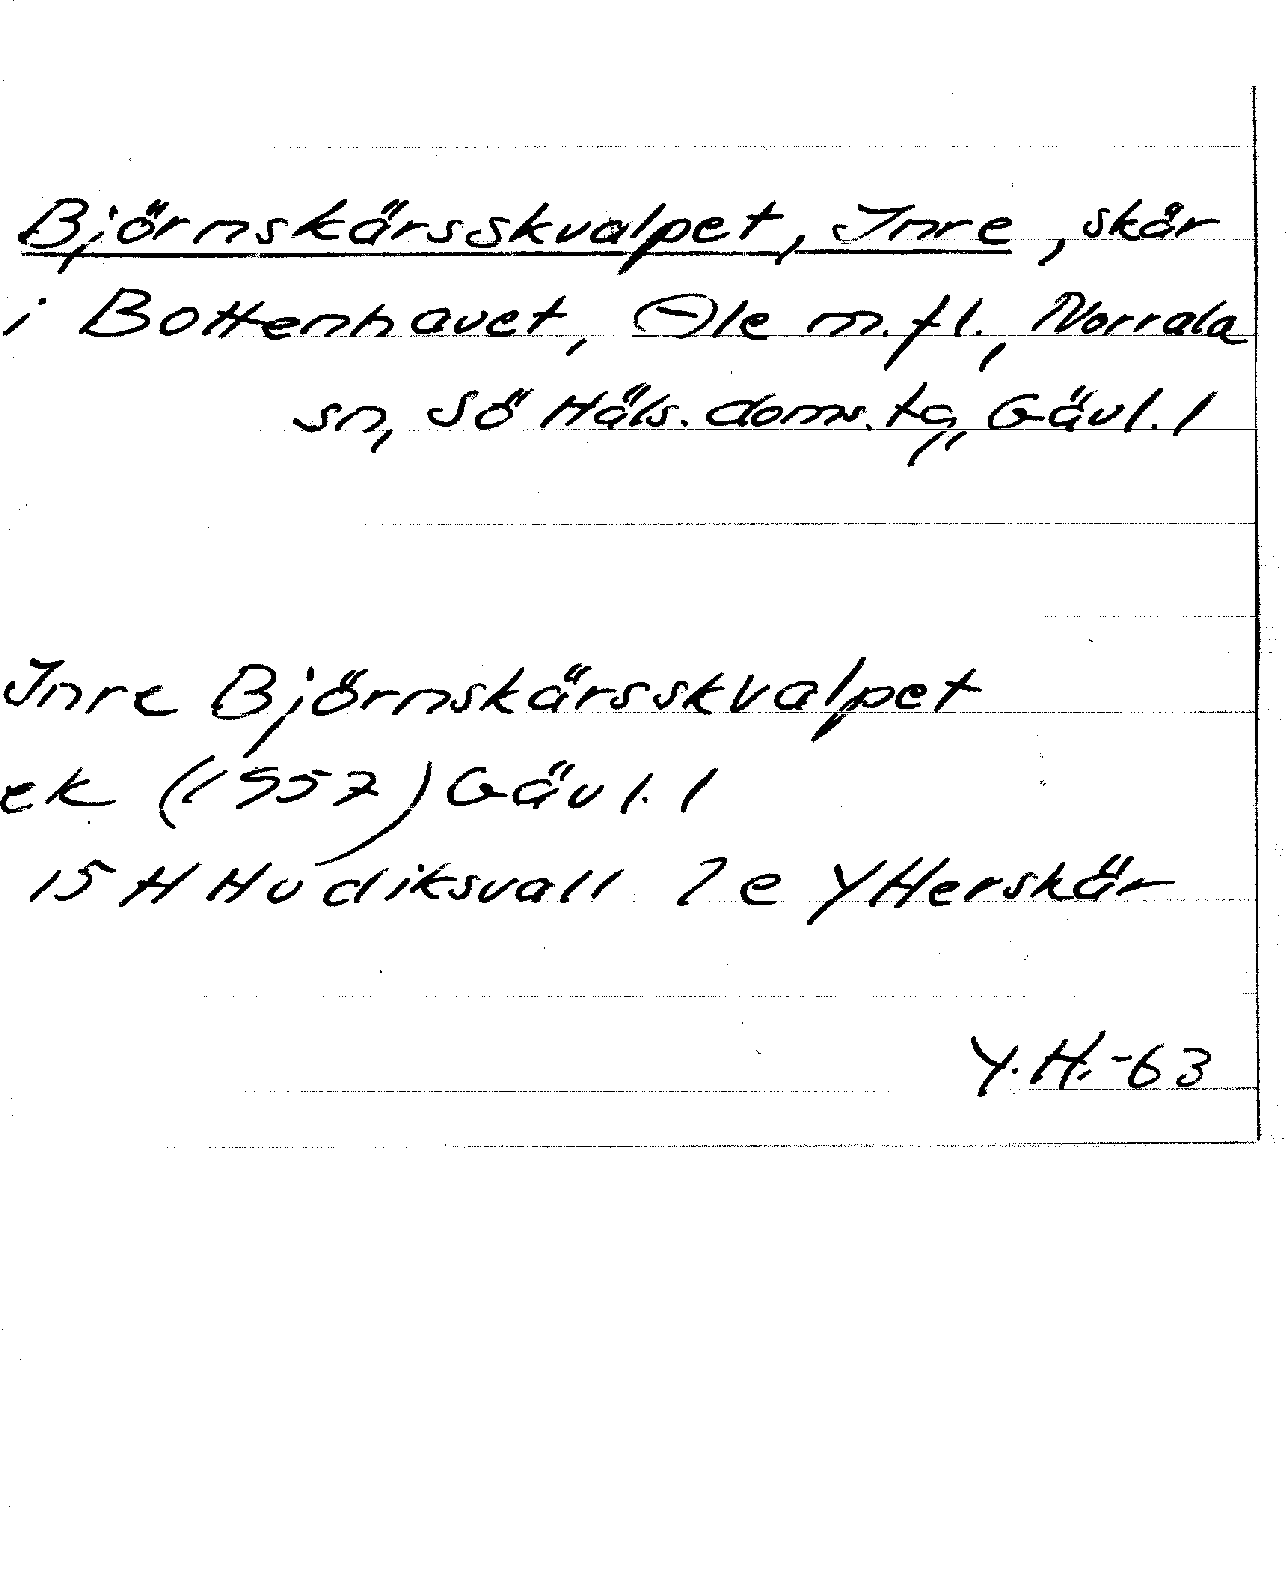 Björnskärsskvalpet, Inre, skär
i Bottenhavet, Öle m.fl., Norrala
sn, Sö Häls. doms. tg, Gävl. l
Inre Björnskärsskvalpet
ek (1957) Gävl. l
15 H Hudiksvall 2 e Ytterskär
Y.H.-63